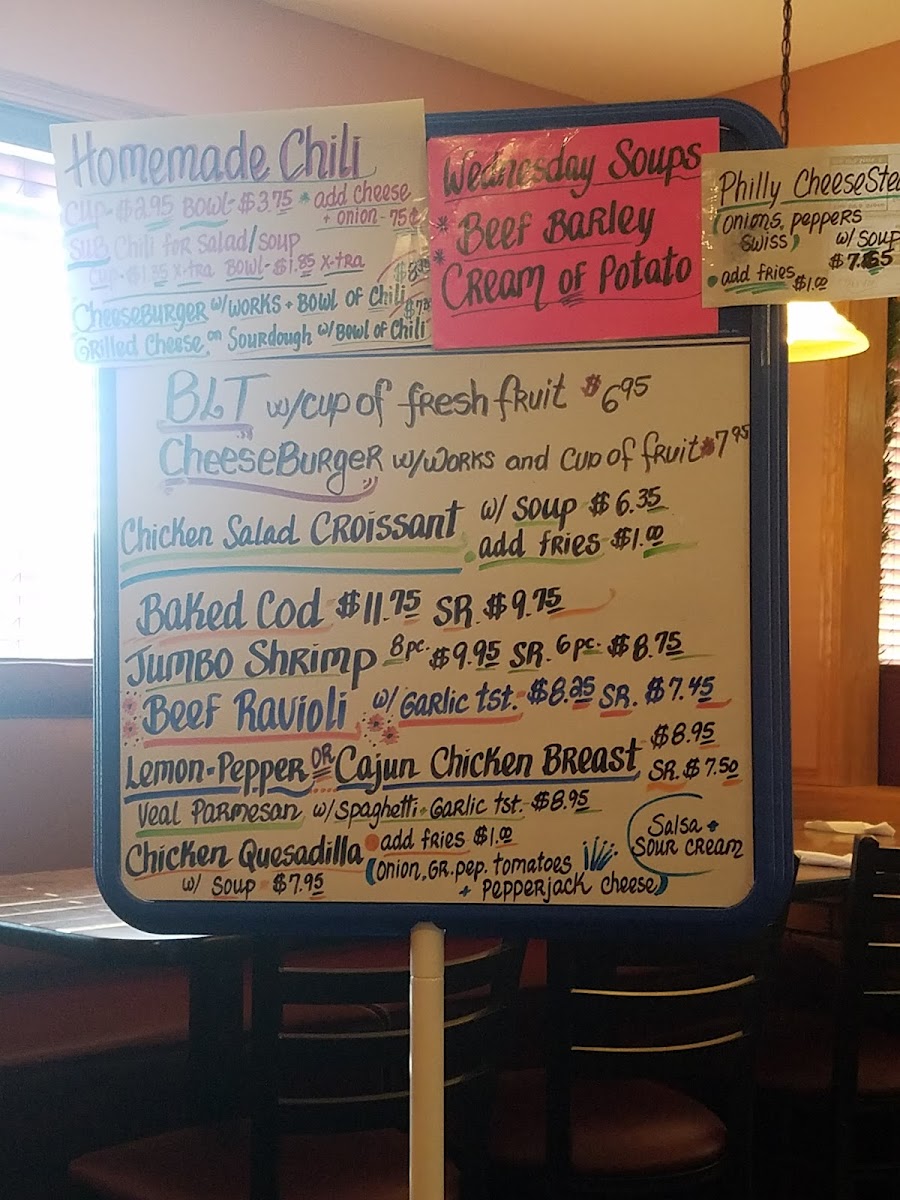 Homemade Chili
Cup-$2.95 Bowl-$3.75 * add cheese
+ onion-75¢
Sub Chili for salad/soup
cup-$1.35 x-tra Bowl-$1.85 x-tra
CheeseBurger w/works + Bowl of Chili
Grilled Cheese on Sourdough w/Bowl of Chili
Wednesday Soups
* Beef Barley
* Cream of Potato
Philly CheeseSte
(onions, peppers
Swiss) w/ soup
$7.65
• add fries $1.00
BLT w/cup of fresh fruit $6.95
CheeseBurger w/works and cup of fruit $7.95
Chicken Salad Croissant w/ soup $6.35
• add fries $1.00
Baked Cod $11.75 SR. $9.75
Jumbo Shrimp 8pc. $9.95 SR. 6pc. $8.75
Beef Ravioli w/ Garlic tst. $8.25 SR. $7.45
Lemon-Pepper OR Cajun Chicken Breast $8.95
SR. $7.50
Veal Parmesan w/ Spaghetti + Garlic tst. $8.95
Chicken Quesadilla • add fries $1.00
w/ soup $7.95
(onion, GR. pep. tomatoes
+ pepperjack cheese)
Salsa +
Sour cream